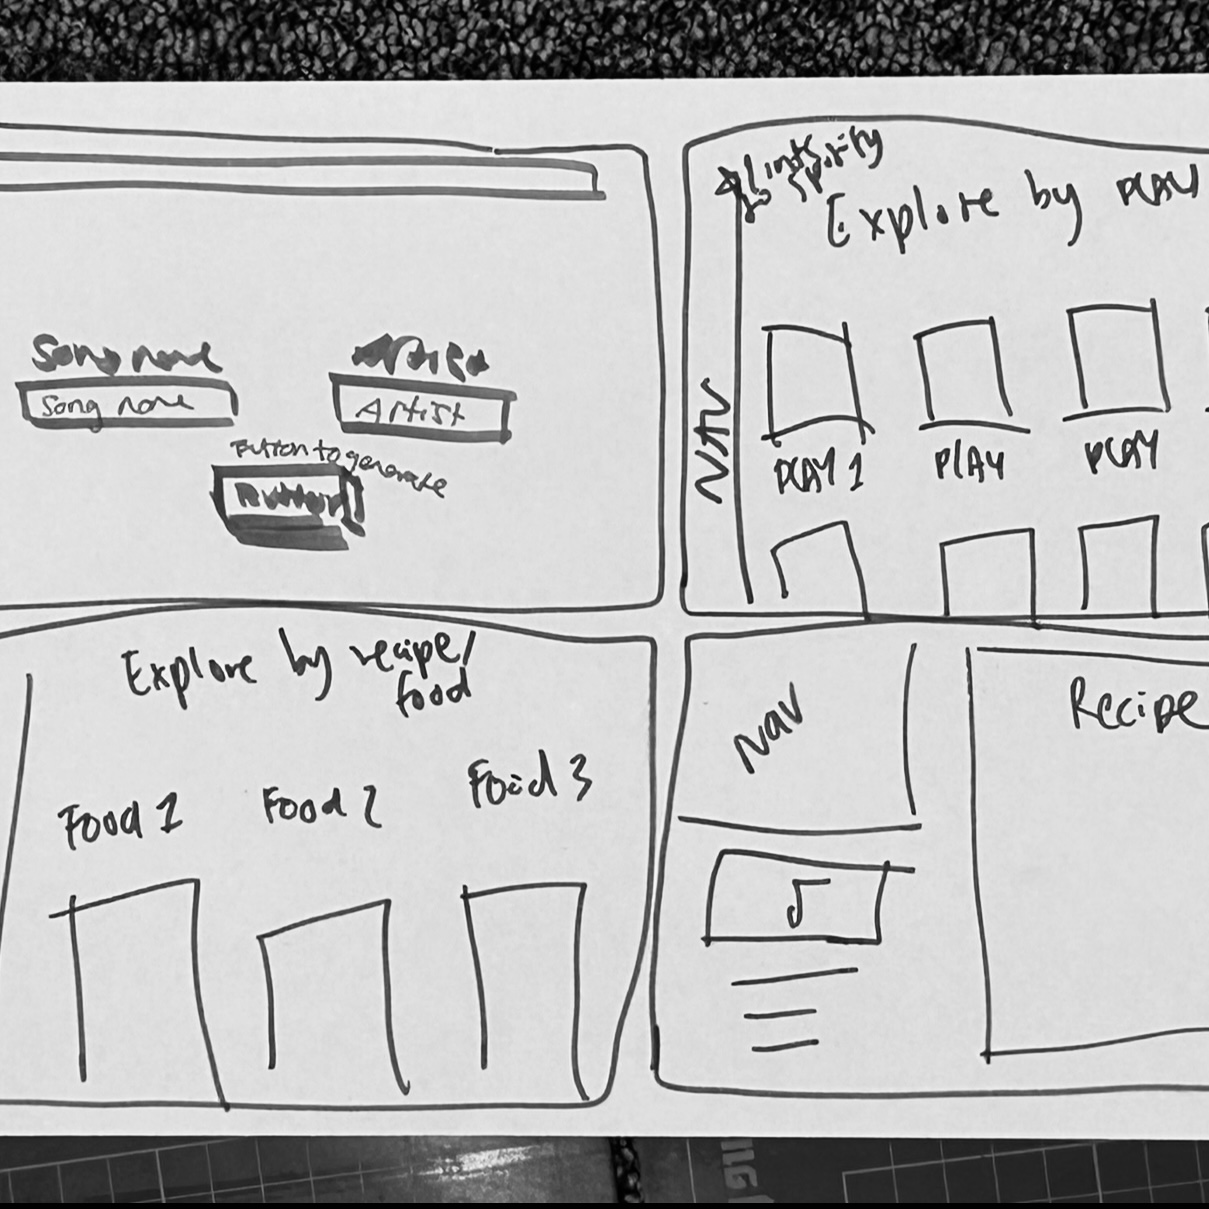 Song name
Song name
Artist
Button to generate
Button
Links
Spotify
Explore by PLAY
NAV
PLAY 1
PLAY
PLAY
Explore by recipe/
food
Food 1
Food 2
Food 3
NAV
Recipe